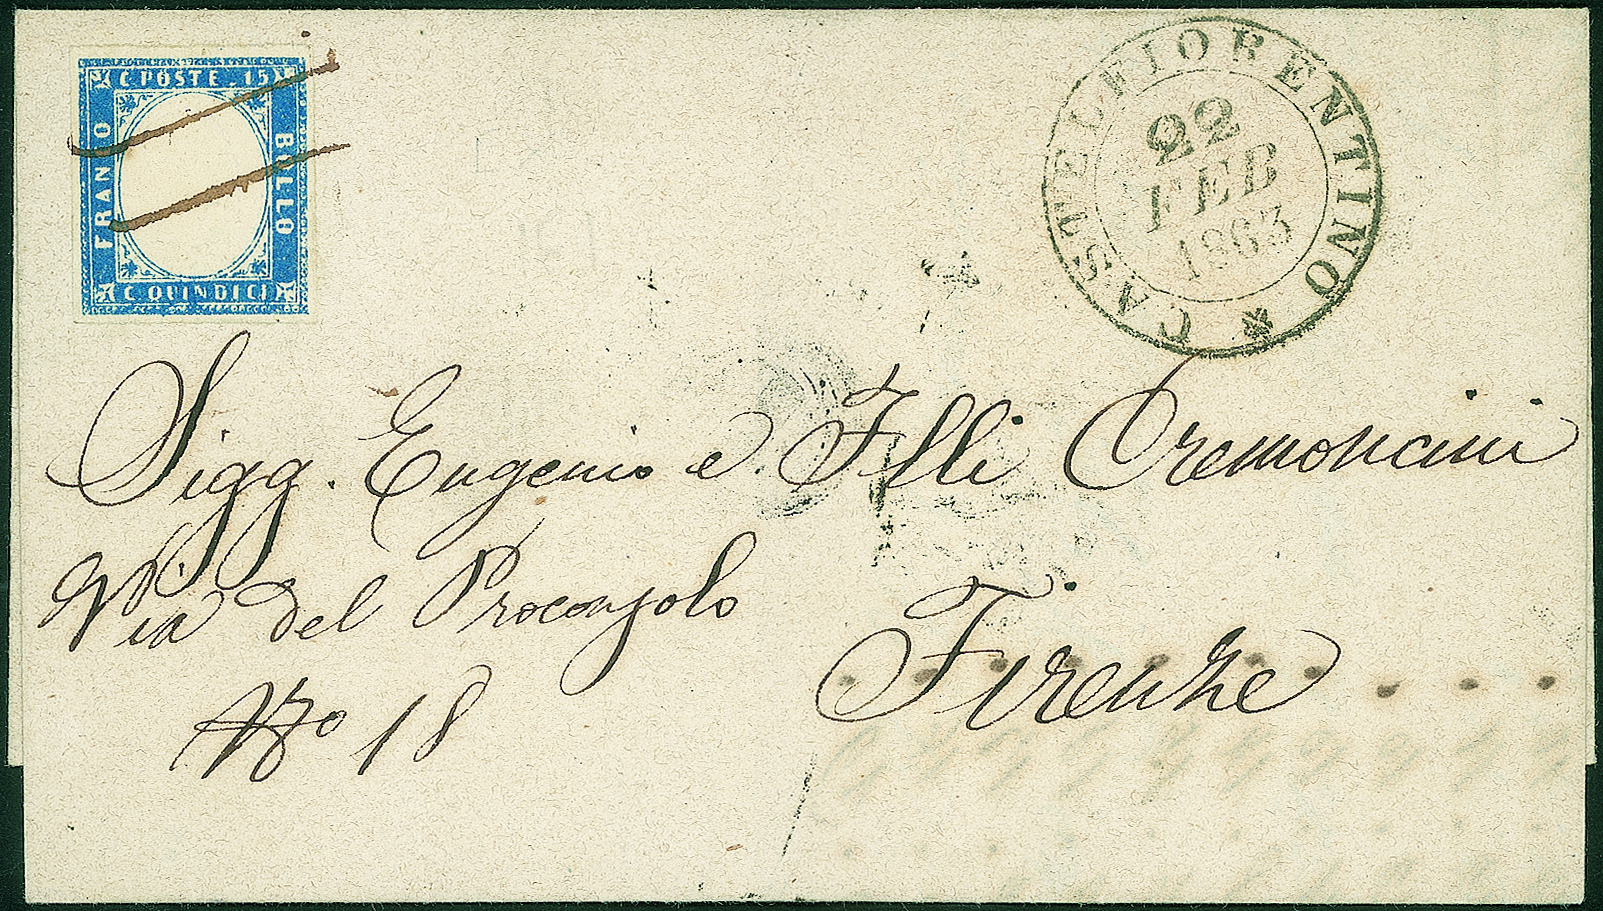 C POSTE . 15
FRANCO
BOLLO
C QUINDICI
CASTELFIORENTINO
22
FEB
1863
Sigg. Eugenio e Flli Cremoncini
Via del Proconsolo
Nro 18
Firenze